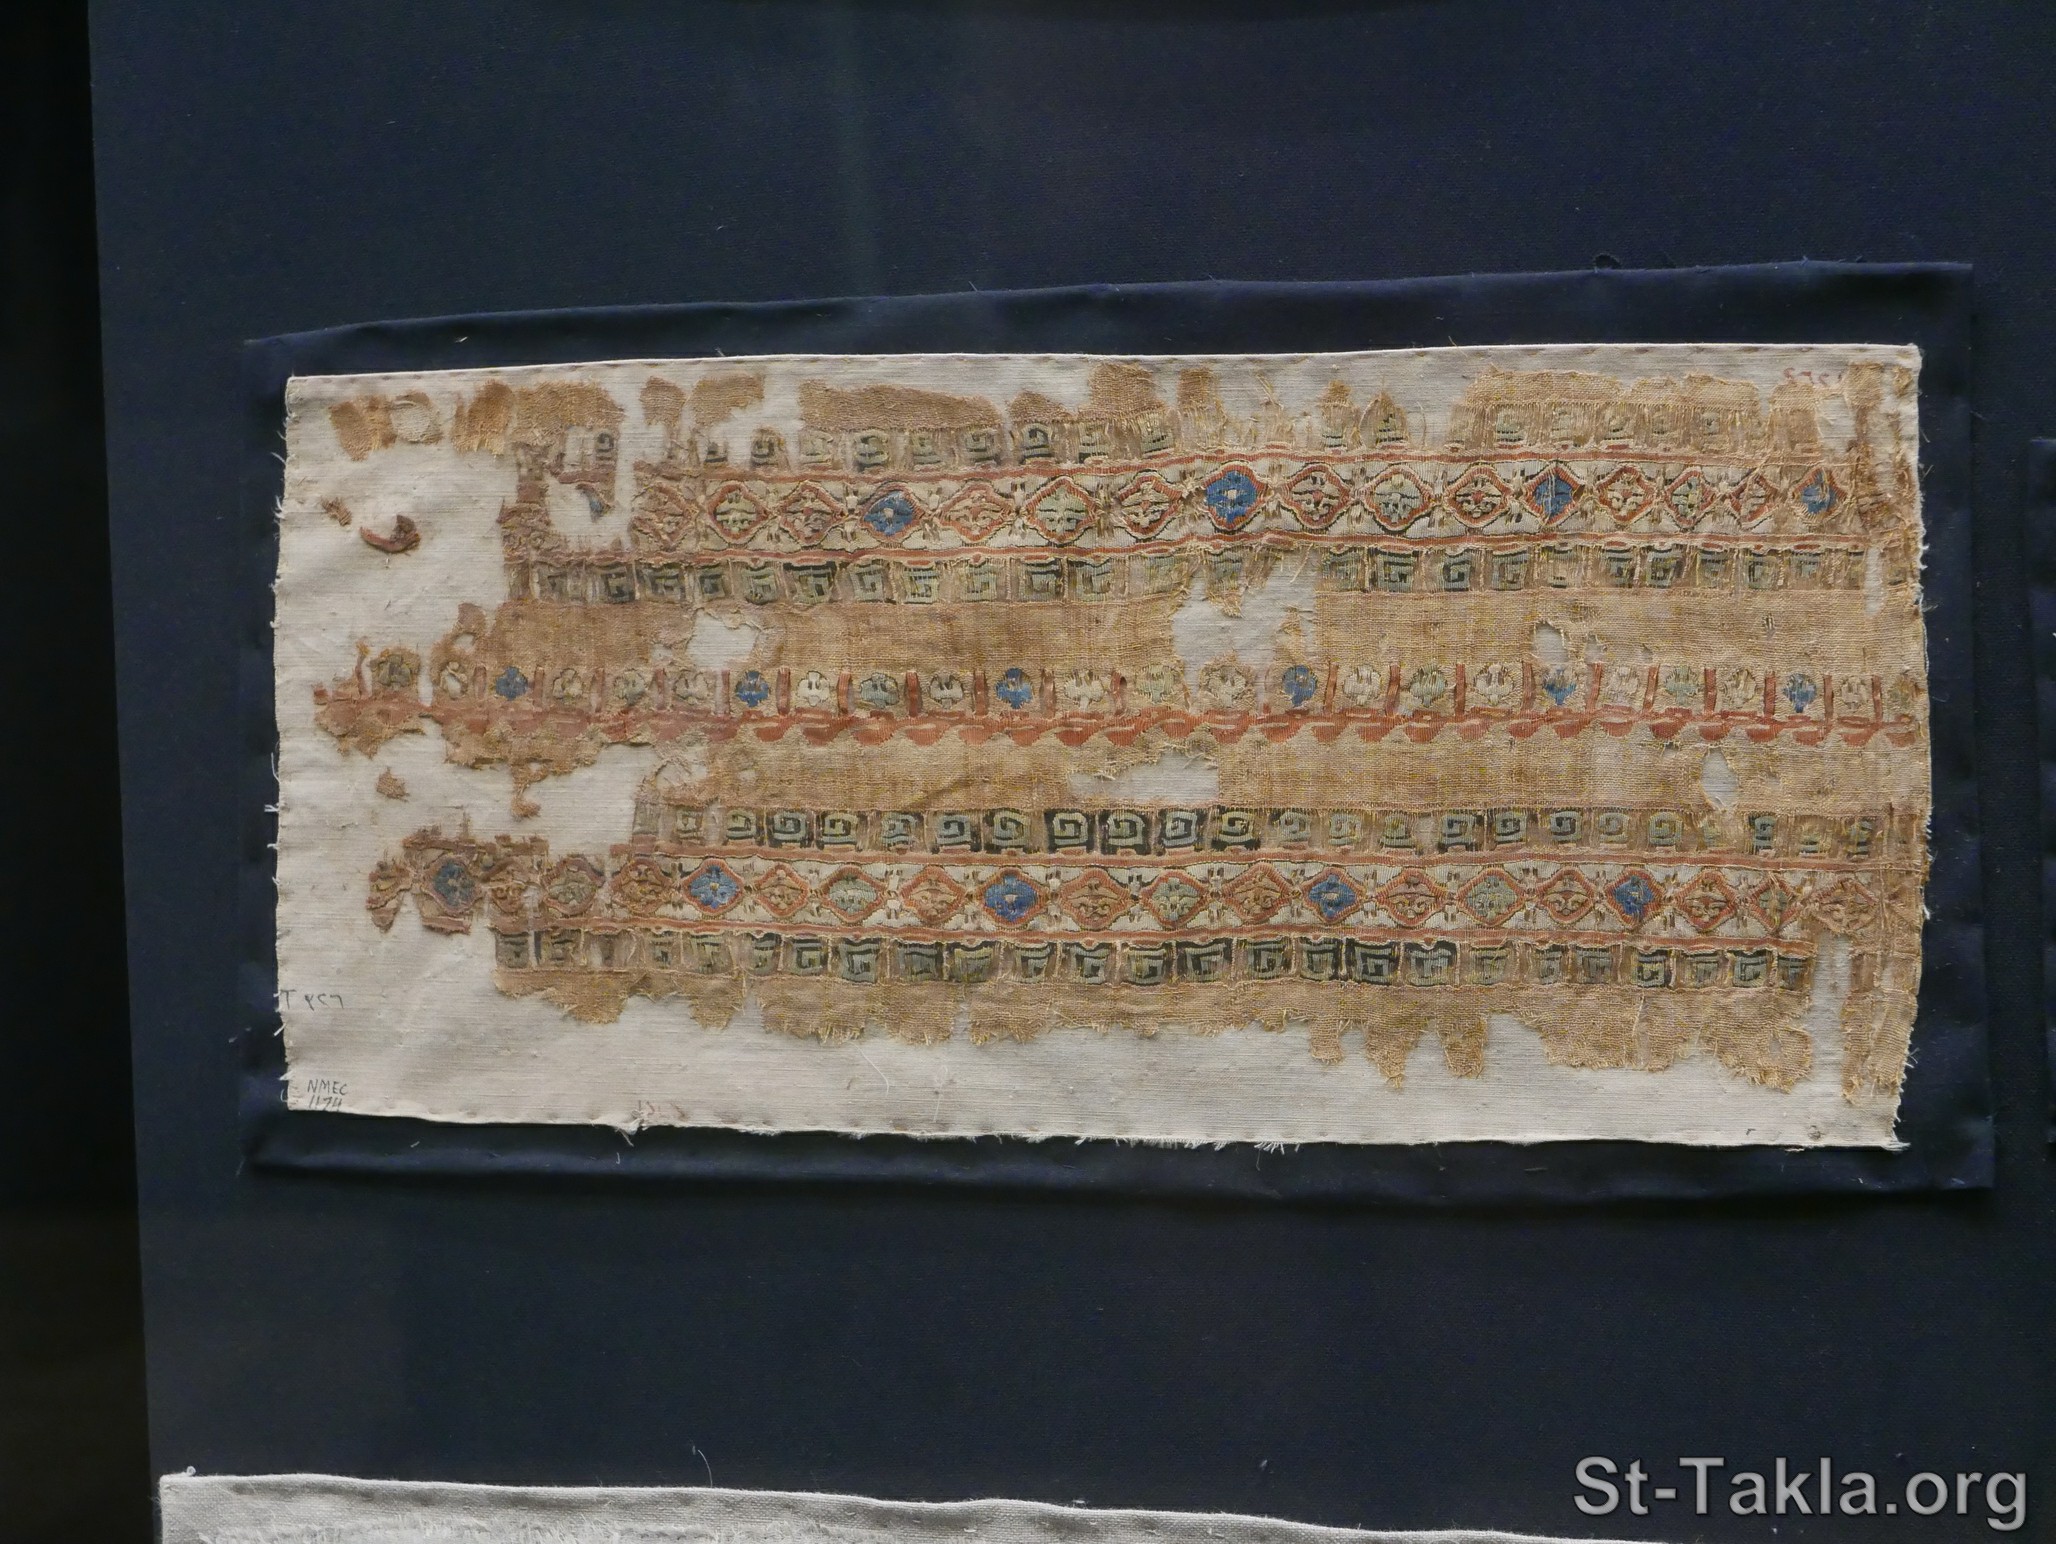 T ٩٢٦
NMEC
1174
St-Takla.org